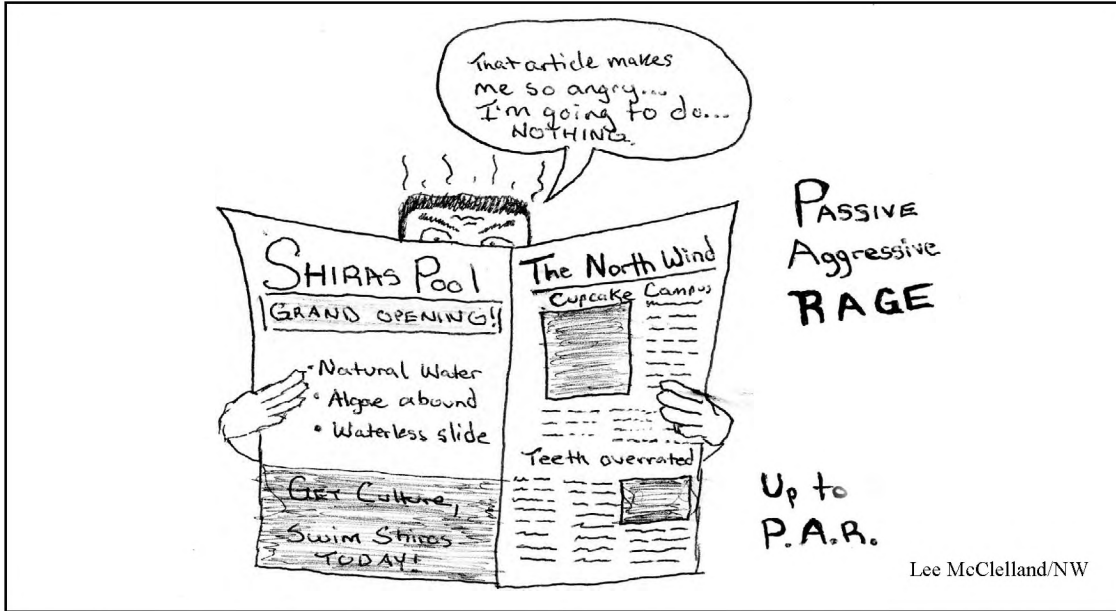 That article makes
me so angry...
I'm going to do...
NOTHING.
SHIRAS POOL
GRAND OPENING!
• Natural Water
• Algae abound
• Waterless slide
GET Culture,
Swim Shiras
TODAY!
The North Wind
Cupcake Campus
Teeth overrated
PASSIVE
Aggressive
RAGE
Up to
P.A.R.
Lee McClelland/NW